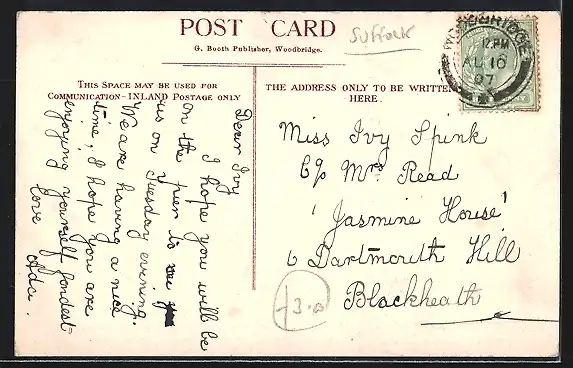 POST CARD
G. Booth Publisher, Woodbridge.
Suffolk
WOODBRIDGE
12.PM
AU 16
07
THIS SPACE MAY BE USED FOR
COMMUNICATION–INLAND POSTAGE ONLY
THE ADDRESS ONLY TO BE WRITTEN
HERE.
Dear Ivy
I hope you will be
on the pier to
us on Tuesday evening.
We are having a nice
time, I hope you are
enjoying yourself fondest
love Ada.
Miss Ivy Spink
C/o Mrs Read
'Jasmine House'
6 Dartmouth Hill
Blackheath